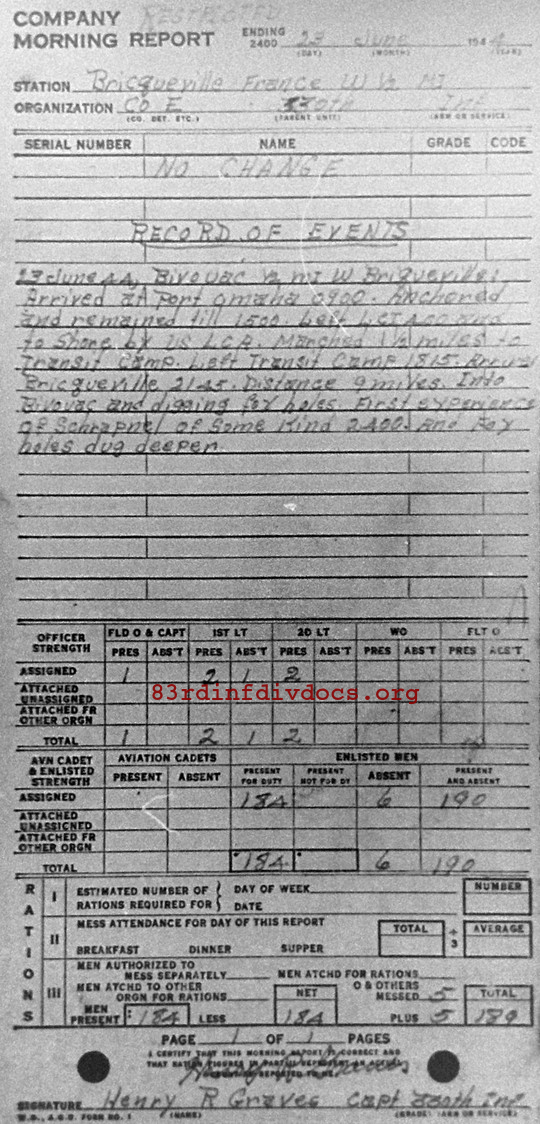 COMPANY RESTRICTED
MORNING REPORT ENDING 2400 23 June 1944
(DAY) (MONTH) (YEAR)
STATION Bricqueville France W ½ MI
ORGANIZATION Co E 330th Inf
(CO. DET. ETC.) (PARENT UNIT) (ARM OR SERVICE)
SERIAL NUMBER NAME GRADE CODE
NO CHANGE
RECORD OF EVENTS
23 June 44, Bivouac ½ mi W Briqueville:
Arrived at Port Omaha 0900. Anchored
and remained till 1500. Left LCI 400 and
to Shore by US LCA. Marched 1½ miles to
Transit Camp. Left Transit Camp 1815. Arrived
Bricqueville 2145. Distance 9 miles. Into
Bivouac and digging fox holes. First experience
of Schrapnel of some Kind 2400. And Fox
holes dug deeper.
OFFICER STRENGTH FLD O & CAPT 1ST LT 2D LT WO FLT O
PRES ABS'T PRES ABS'T PRES ABS'T PRES ABS'T PRES ABS'T
ASSIGNED 1 2 1 2
ATTACHED UNASSIGNED
83rdinfdivdocs.org
ATTACHED FR OTHER ORGN
TOTAL 1 2 1 2
AVN CADET & ENLISTED STRENGTH AVIATION CADETS ENLISTED MEN
PRESENT ABSENT PRESENT FOR DUTY PRESENT NOT FOR DY ABSENT PRESENT AND ABSENT
ASSIGNED 184 6 190
ATTACHED UNASSIGNED
ATTACHED FR OTHER ORGN
TOTAL 184 6 190
RATIONS
I ESTIMATED NUMBER OF RATIONS REQUIRED FOR { DAY OF WEEK DATE NUMBER
II MESS ATTENDANCE FOR DAY OF THIS REPORT TOTAL ÷ 3 AVERAGE
BREAKFAST DINNER SUPPER
III MEN AUTHORIZED TO MESS SEPARATELY MEN ATCHD FOR RATIONS
MEN ATCHD TO OTHER ORGN FOR RATIONS NET O & OTHERS MESSED 5 TOTAL
MEN PRESENT: 184 LESS 184 PLUS 5 189
PAGE 1 OF 1 PAGES
I CERTIFY THAT THIS MORNING REPORT IS CORRECT AND
THAT
SIGNATURE Henry R Graves Capt 330th Inf
W.D., A.G.O. FORM NO. 1 (NAME) (GRADE) (ARM OR SERVICE)